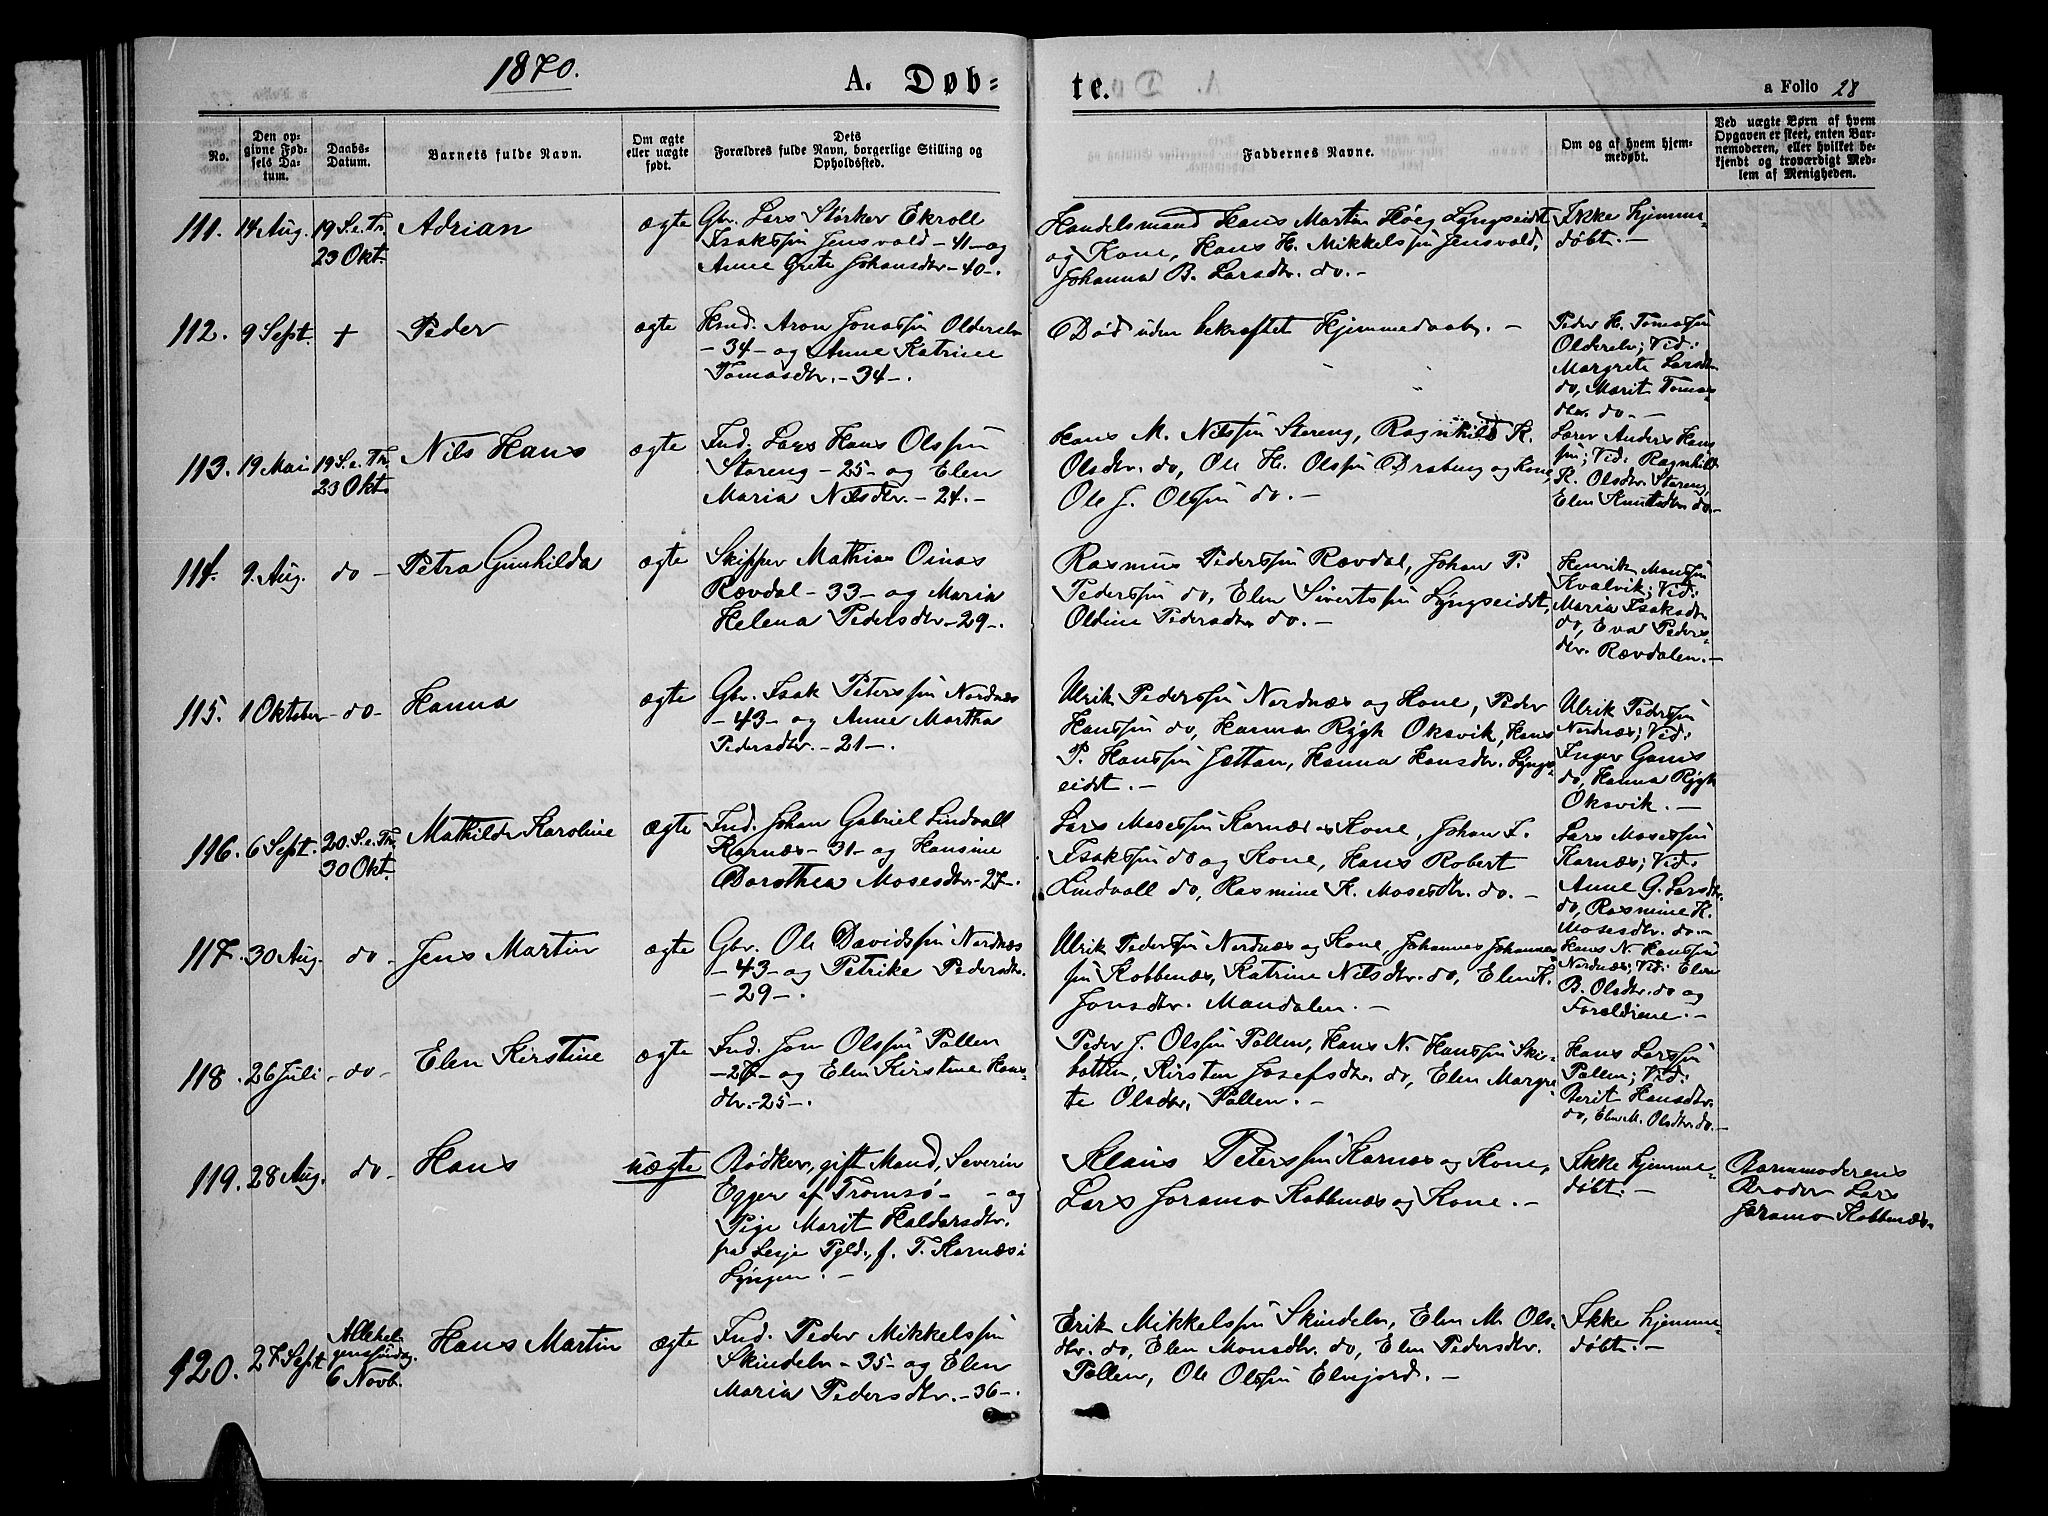 1870.
A. Døb-
te.
a Folio 28
No.
Den op-
givne Fød-
sels Da-
tum.
Daabs-
Datum.
Barnets fulde Navn.
Om ægte
eller uægte
født.
Dets
Forældres fulde Navn, borgerlige Stilling og
Opholdssted.
Faddernes Navne.
Om og af hvem hjem-
medøbt.
Ved uægte Børn af hvem
Opgaven er skeet, enten Bar-
nemoderen, eller hvilket be-
kjendt og troværdigt Med-
lem af Menigheden.
111.
14 Aug.
19 S. e. Tr.
23 Okt.
Adrian
ægte
Gbr. Lars Størker Ekroll
Isakssøn Jensvold - 41 - og
Anne Grete Johansdtr. - 40 -.
Handelsmand Hans Martin Høeg Lyngseidt
og Kone, Hans H. Mikkelssøn Jensvold,
Johanna B. Larsdtr. do. -
Ikke hjemme-
døbt. -
112.
9 Sept.
+
Peder
ægte
Hmd. Aron Jonassøn Olderelv
- 34 - og Anne Katrine
Tomasdtr. - 34 -.
Død uden bekræftet Hjemmedaab. -
Peder H. Tomassøn
Olderelv; Vid:
Margrete Larsdtr.
do, Marit Tomas
dtr. do. -
113.
19 Mai
19 S. e. Tr.
23 Okt.
Nils Hans
ægte
Ind. Lars Hans Olssøn
Storeng - 25 - og Elen
Maria Nilsdtr. - 24. -
Hans M. Nilssøn Storeng, Ragnhild K.
Olsdtr. do, Ole H. Olssøn Draberg og Kone,
Ole J. Olssøn do. -
Lærer Anders Hans
søn; Vid: Ragnhild
K. Olsdtr. Storeng,
Elen Knutsdtr. do. -
114.
9. Aug.
do -
Petra Gunhilda
ægte
Skipper Mathias Oinas
Rævdal - 33 - og Maria
Helena Pedersdtr. - 29 -.
Rasmus Pederssøn Rævdal, Johan P.
Pederssøn do, Elen Sivertssøn Lyngseidt,
Oldine Pedersdtr. do. -
Henrik Monssøn
Kvalvik; Vid:
Maria Isaksdtr.
do, Eva Peders-
dtr. Rævdalen. -
115.
1 Oktober
- do -
Hanna
ægte
Gbr. Isak Peterssøn Nordnæs
- 43 - og Anne Martha
Pedersdtr. - 21 -.
Ulrik Pederssøn Nordnæs og Kone, Peder
Hanssøn do, Hanna Rygh Oksvik, Hans
P. Hanssøn Jottan, Hanna Hansdtr. Lyngs-
eidt. -
Ulrik Pederssøn
Nordnæs; Vid:
Inger Gams
do, Hanna Rygh
Oksvik. -
116.
6 Sept.
20. S. e. Tr.
30 Okt.
Mathilde Karoline
ægte
Ind. Johan Gabriel Lindvall
Karnæs - 31 - og Hansine
Dorothea Mosesdtr. - 27 -.
Lars Mosessøn Karnæs og Kone, Johan I.
Isakssøn do og Kone, Hans Robert
Lindvall do, Rasmine K. Mosesdtr. do. -
Lars Mosessøn
Karnæs; Vid:
Anne G. Larsdtr.
do, Rasmine K.
Mosesdtr. do. -
117.
30 Aug.
do -
Jens Martin
ægte
Gbr. Ole Davidssøn Nordnæs
- 43 - og Petrike Pedersdtr.
- 29 -.
Ulrik Pederssøn Nordnæs og Kone, Johannes Johannes
søn Kobbenæs, Katrine Nilsdtr. do, Elen K.
Jonsdtr. Mandalen. -
Hans N. Hanssøn
Nordnæs; Vid: Elen
B. Olsdtr. do og
Forældrene. -
118.
26 Juli
- do -
Elen Kirstine
ægte
Ind. Jon Olssøn Pollen
- 27 - og Elen Kirstine Hans-
dtr. - 25 -.
Peder J. Olssøn Pollen, Hans N. Hanssøn Ski-
botten, Kirsten Josefsdtr. do, Elen Margre-
te Olsdtr. Pollen. -
Hans Larssøn
Pollen; Vid:
Berit Hansdtr.
do, Elen M. Olsdtr. do. -
119.
28 Aug.
do
Hans
uægte
Bødker, gift Mand, Severin
Eggen af Tromsø - - og
Pige Marit Haldorsdtr.
fra Lesje Pgld., f. T. Karnæs i
Lyngen. -
Klaus Peterssøn Karnæs og Kone,
Lars Joramo Kobbenæs og Kone. -
Ikke hjemme-
døbt. -
Barnmoderens
Broder Lars
Joramo Kobbenæs.
120.
27 Sept
Allehel-
gensøndag.
6 Novb.
Hans Martin
ægte
Ind. Peder Mikkelssøn
Skindelv - 35 - og Elen
Maria Pedersdtr. - 36 -.
Erik Mikkelssøn Skindelv, Elen M. Ols-
dtr. do, Elen Monsdtr. do, Elen Pedersdtr.
Pollen, Ole Olssøn Elvejord. -
Ikke hjemme-
døbt. -